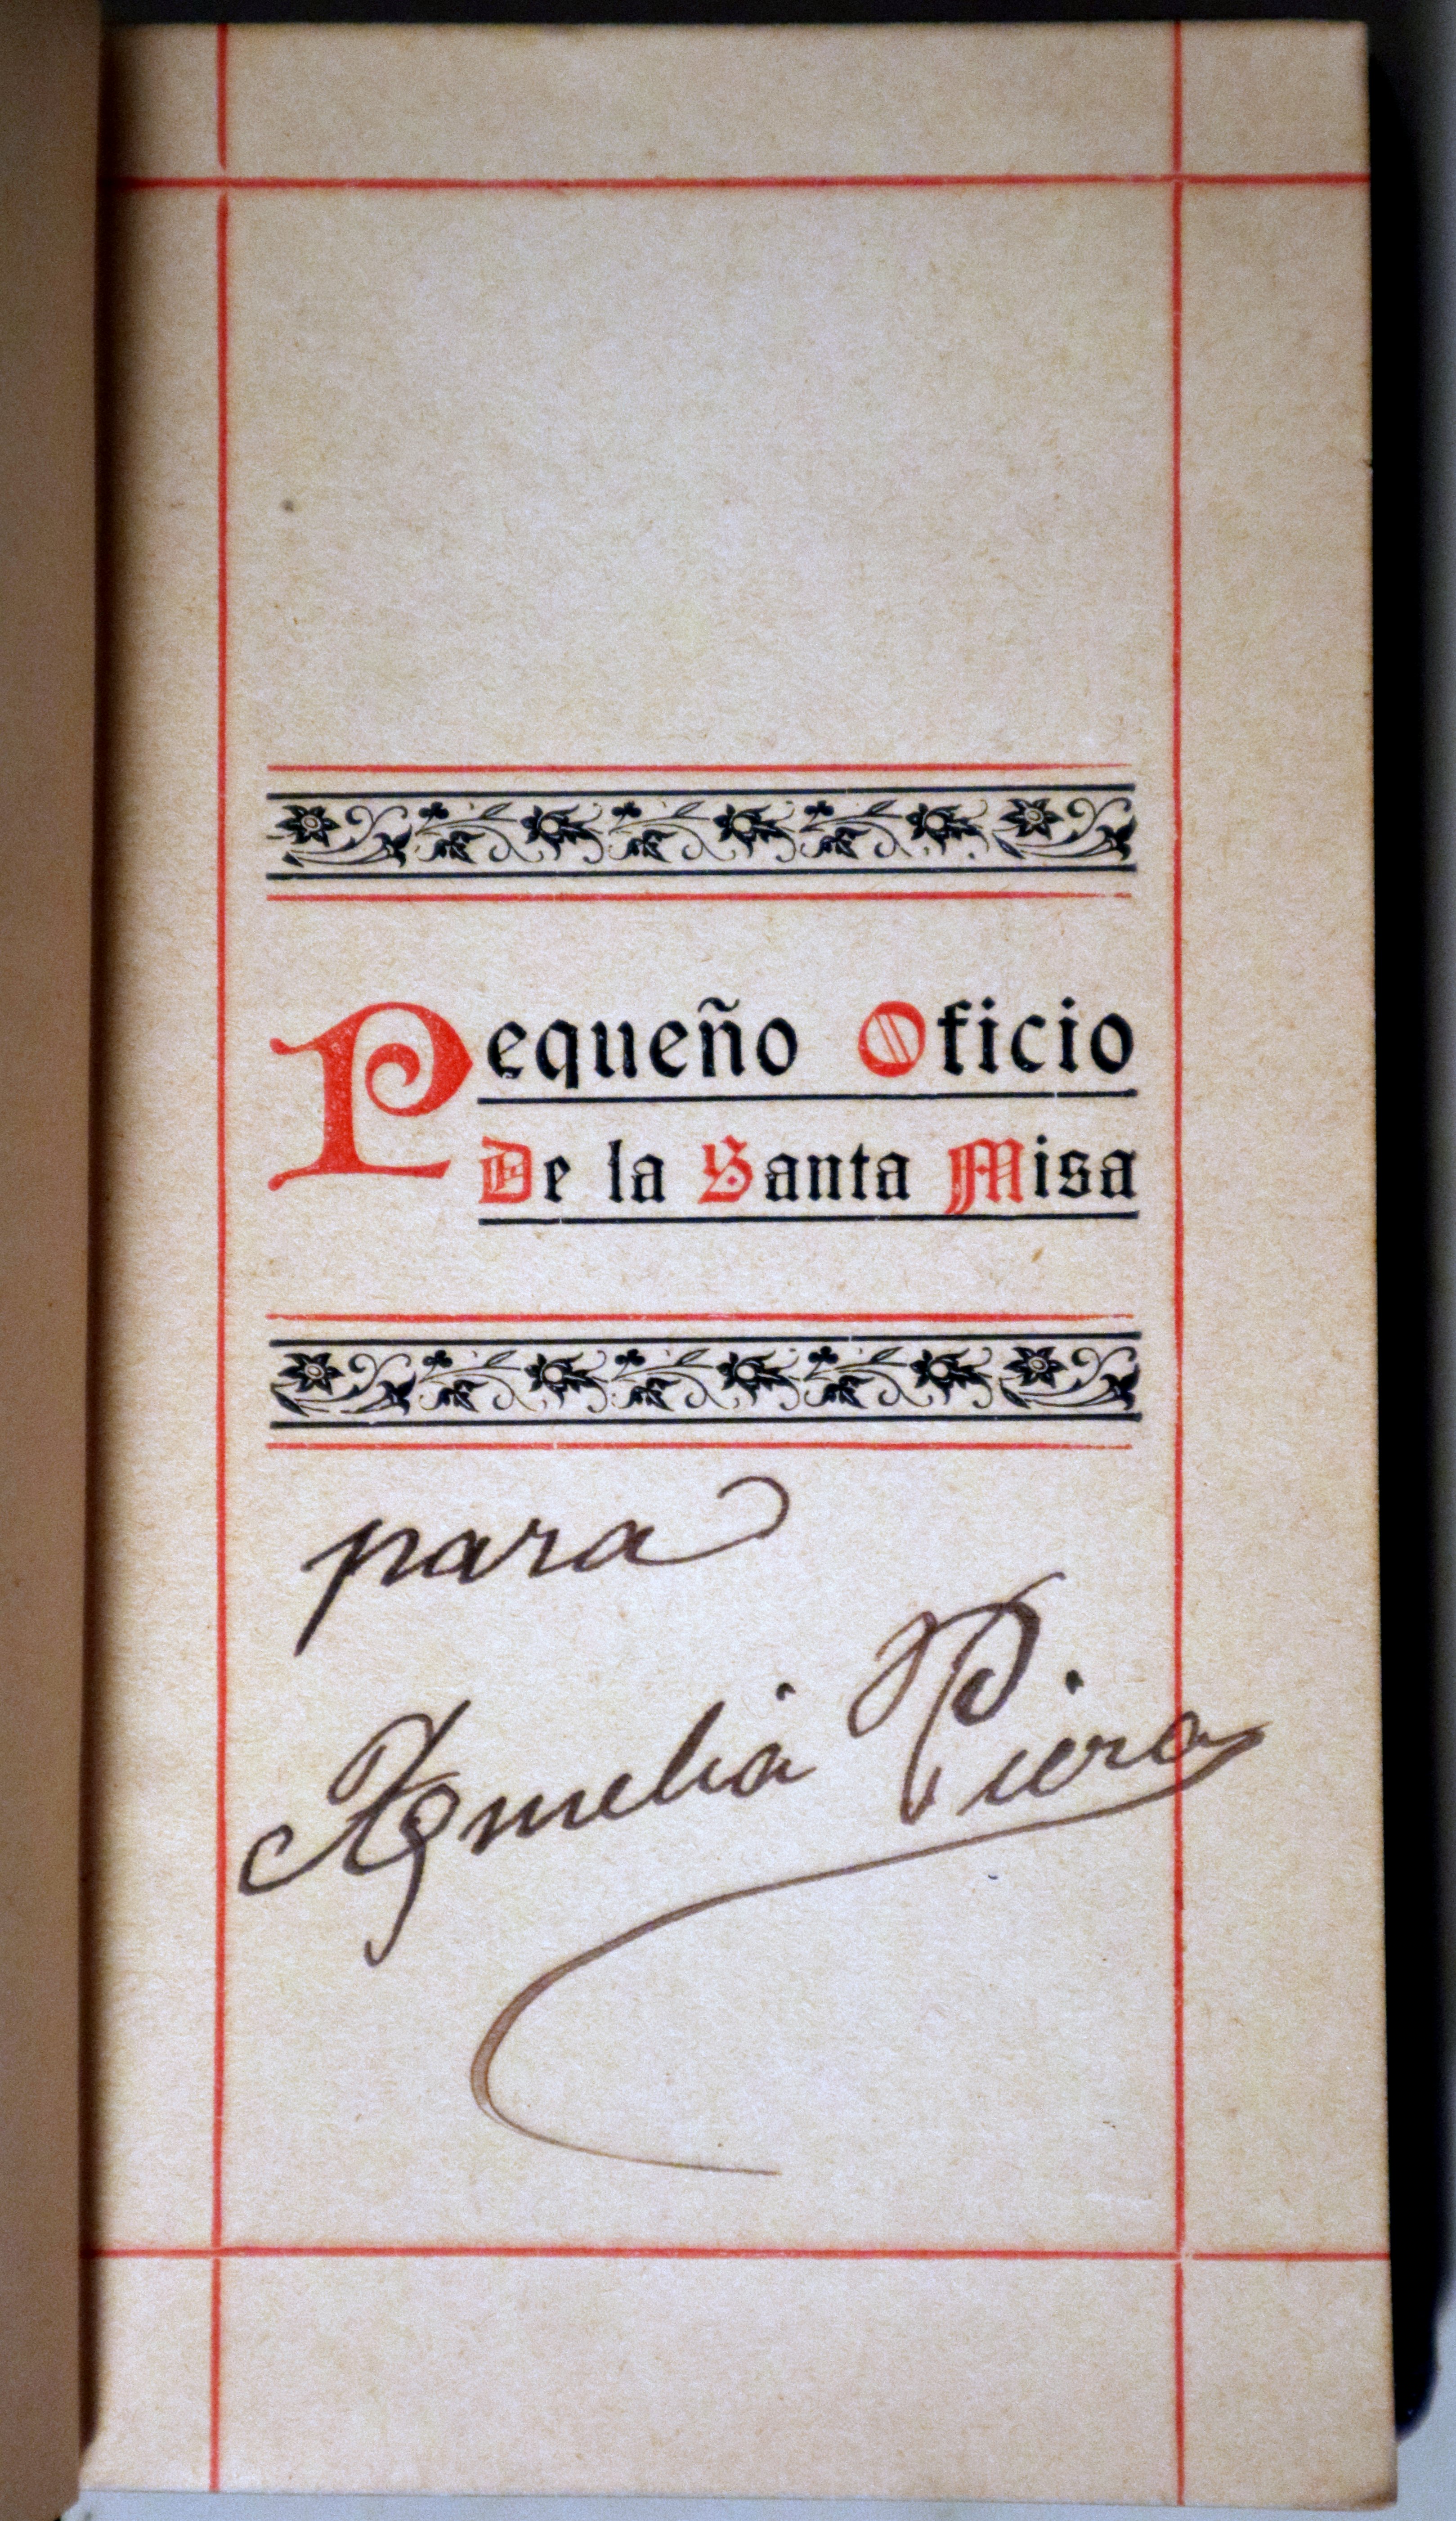 Pequeño Oficio
De la Santa Misa
para
Amelia Piera